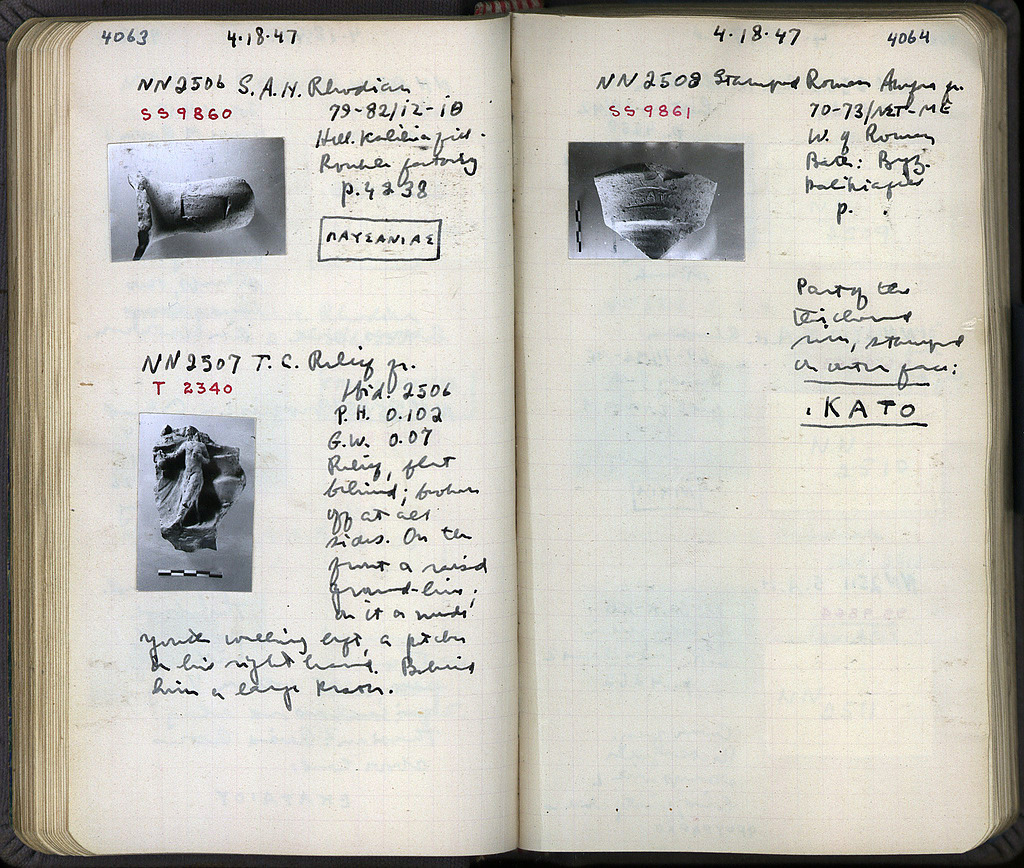 4063 4·18·47
NN2506 S.A.H. Rhodian
SS9860 79-82/ΙΖ-ΙΘ
Hell.
Rouble factory
p. 4238
ΠΑΥΣΑΝΙΑΣ
NN2507 T.C. Relief fr.
T 2340 Ibid. 2506
P.H. 0.102
G.W. 0.07
Relief, flat
behind; broken
off at all
sides. On the
front a raised
ground-line;
on it a nude
youth walking left, a pitcher
in his right hand. Behind
him a large krater.
4·18·47 4064
NN2508 Stamped Roman fr.
SS9861 70-73/
W. of Roman
Bath: Byz.
p. .
Part of the
thickened
rim, stamped
on outer face:
.ΚΑΤΟ